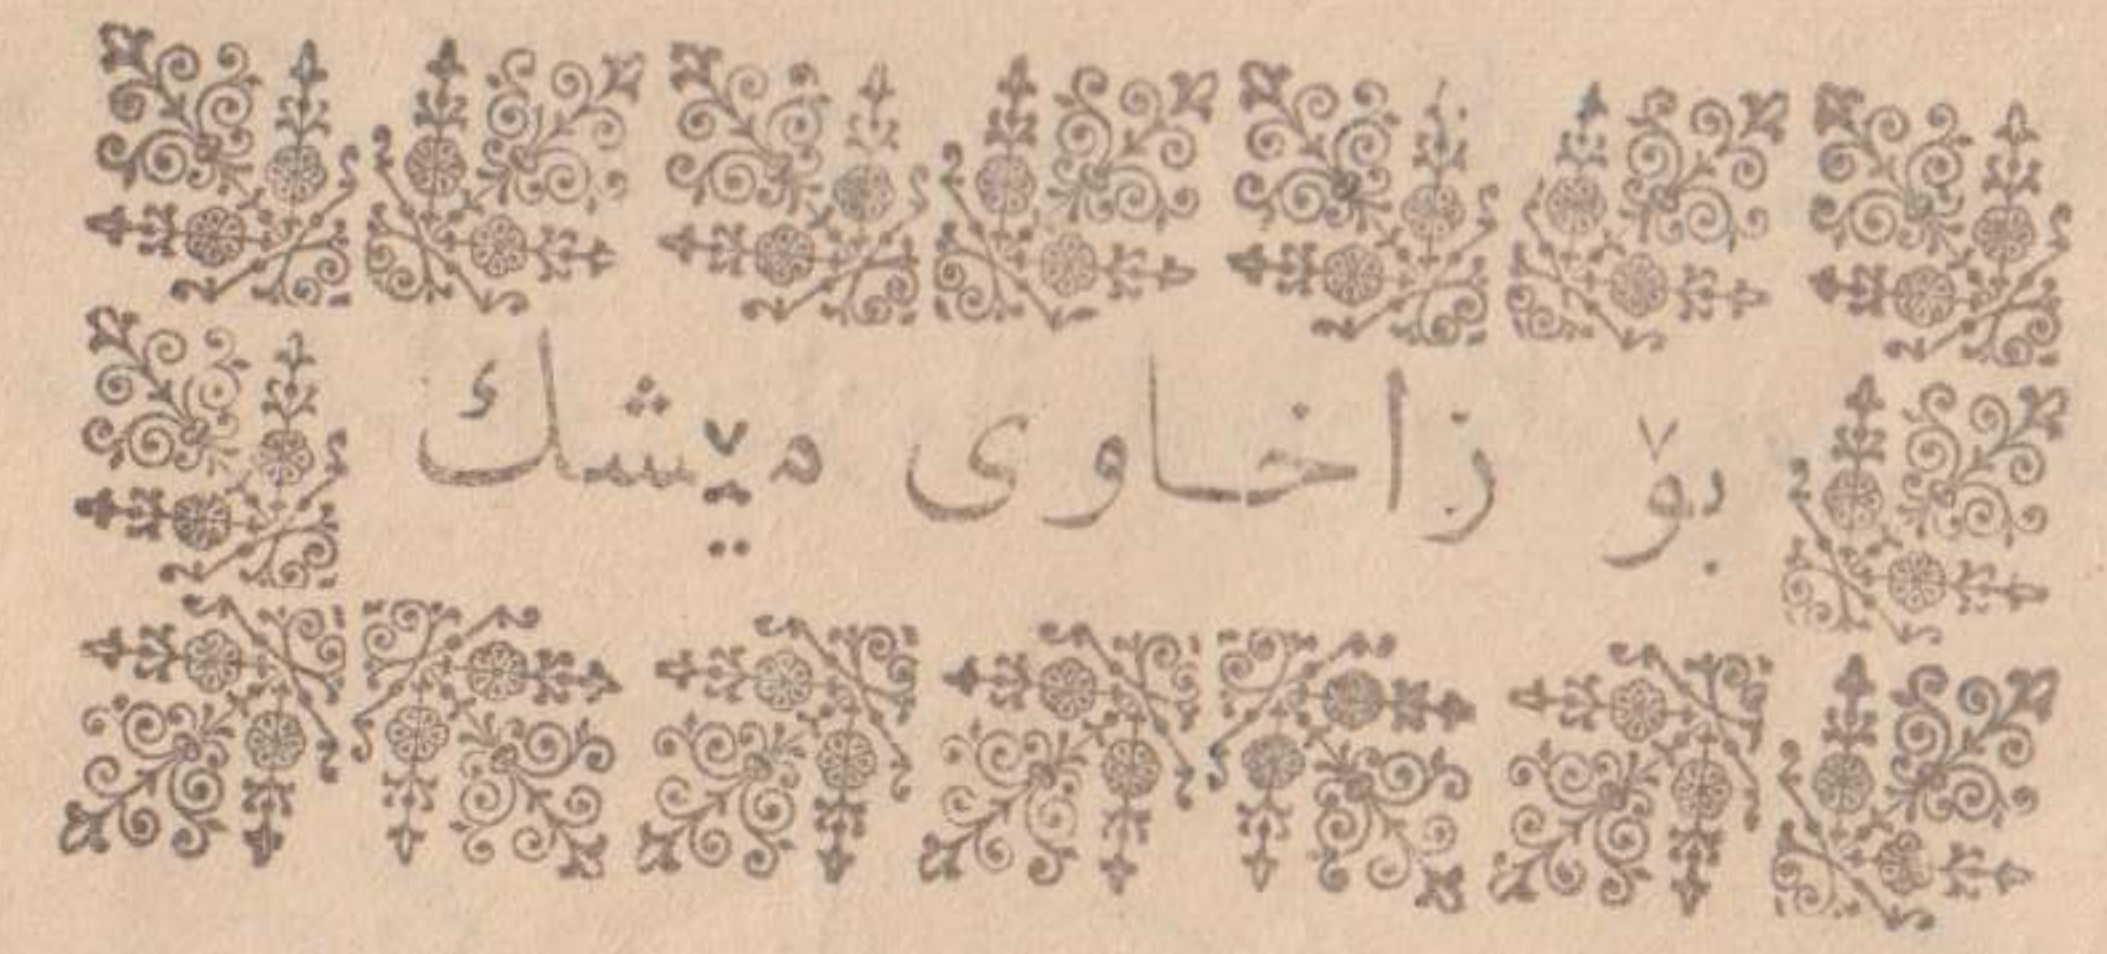 بۆ زاخاوی مێشك